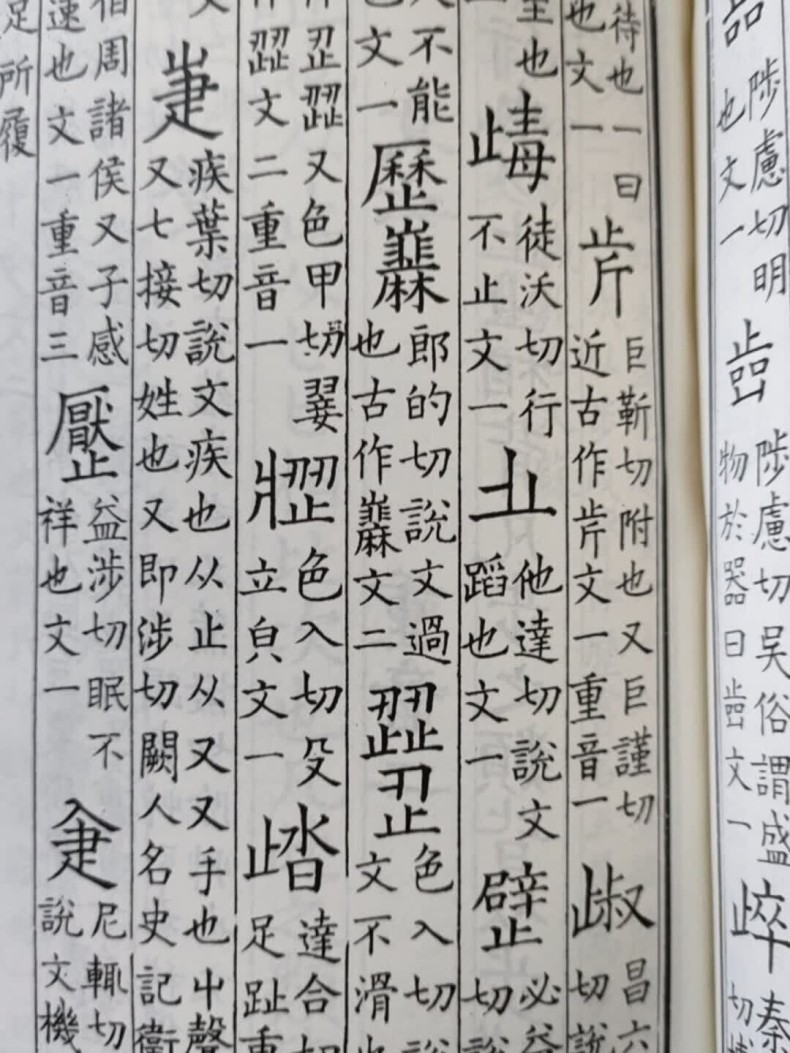 陟慮切明
也文一
陟慮切吳俗謂盛
物於器曰文一
秦
切
待也一曰
也文一
巨靳切附也又巨謹切
近古作文一重音一
昌六
切說
至也
徒沃切行
不止文一
𣥂
他達切說文
蹈也文一
必益
切說
不能
也文一
歷
郎的切說文過
也古作文二
歰
色入切說
文不滑也
又色甲切翣
文二重音一
色入切殳
立㒵文一
達合切
足趾重
疌
疾葉切說文疾也从止从又又手也屮聲
又七接切姓也又即涉切闕人名史記衞
伯周諸侯又子感
速也文一重音三
益涉切眠不
祥也文一
尼輒切
說文機
足所履